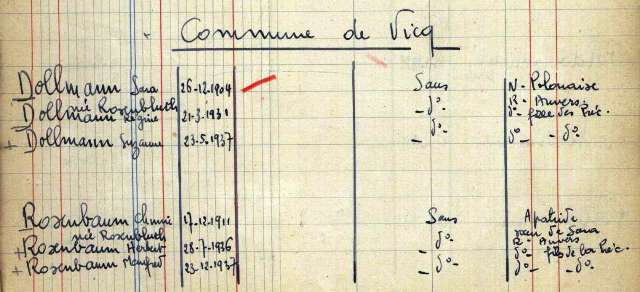 Commune de Vicq
Dollmann Sara 26-12-1904 Sans N- Polonaise
née Rosenbluth R- Anvers
Dollmann Régine 21-3-1931 - d°- d°- fille des Préc.
+ Dollmann Suzanne 23-5-1937 - d°- d°- - d°-
Rosenbaum 17-12-1911 Sans Apatride
née Rosenbluth de Sara
R- Anvers
+ Rosenbaum Herbert 28-7-1936 - d°- d°- fils de la Préc.
+ Rosenbaum Manfred 23-12-1937 - d°- d°- - d°-